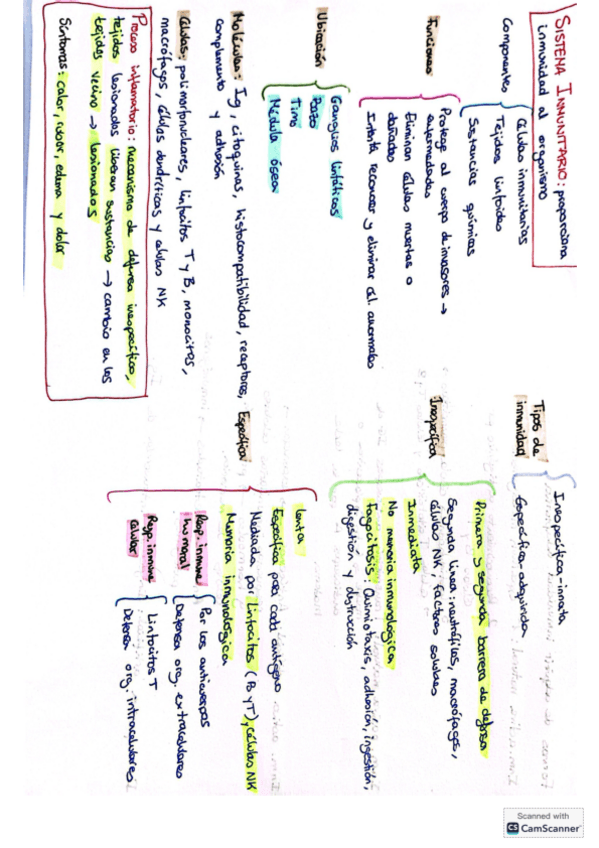 SISTEMA INMUNITARIO: proporciona
inmunidad al organismo
Componentes
Células inmunitarias
Tejidos linfoides
Sustancias químicas
Funciones
Protege al cuerpo de invasores →
enfermedades
Eliminan células muertas o
dañadas
Intenta reconocer y eliminar cél. anormales
Ubicación
Ganglios linfáticos
Bazo
Timo
Médula ósea
Moléculas: Ig, citoquinas, histocompatibilidad, receptores,
complemento y adhesión
Células: polimorfonucleares, linfocitos T y B, monocitos,
macrófagos, células dendríticas y células NK
Proceso inflamatorio: mecanismo de defensa inespecífico,
tejidos lesionados liberan sustancias → cambio en los
tejidos vecino → lesionados
Síntomas: calor, rubor, edema y dolor
Tipos de
inmunidad
Inespecífica-innata
Específica-adquirida
Inespecífica
Primera y segunda barrera de defensa
Segunda línea: neutrófilos, macrófagos,
células NK, factores solubles
Inmediata
No memoria inmunológica
Fagocitosis: Quimiotaxis, adhesión, ingestión,
digestión y destrucción
Específica
Lenta
Específica para cada antígeno
Mediada por linfocitos (B y T), células NK
Memoria inmunológica
Resp. inmune
humoral
Por los anticuerpos
Defensa org. extracelulares
Resp. inmune
celular
Linfocitos T
Defensa org. intracelulares
Scanned with
CS CamScanner